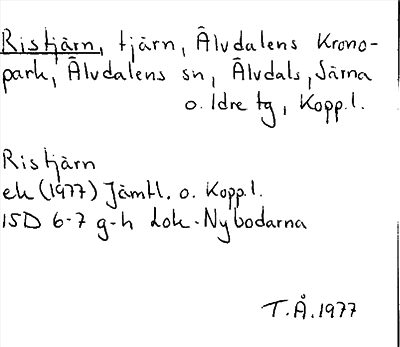 Ristjärn, tjärn, Älvdalens Krono-
park, Älvdalens sn, Älvdals, Särna
o. Idre tg, Kopp.l.
Ristjärn
ek (1977) Jämtl. o. Kopp.l.
15D 6-7 g-h Lok. Nybodarna
T.Å. 1977